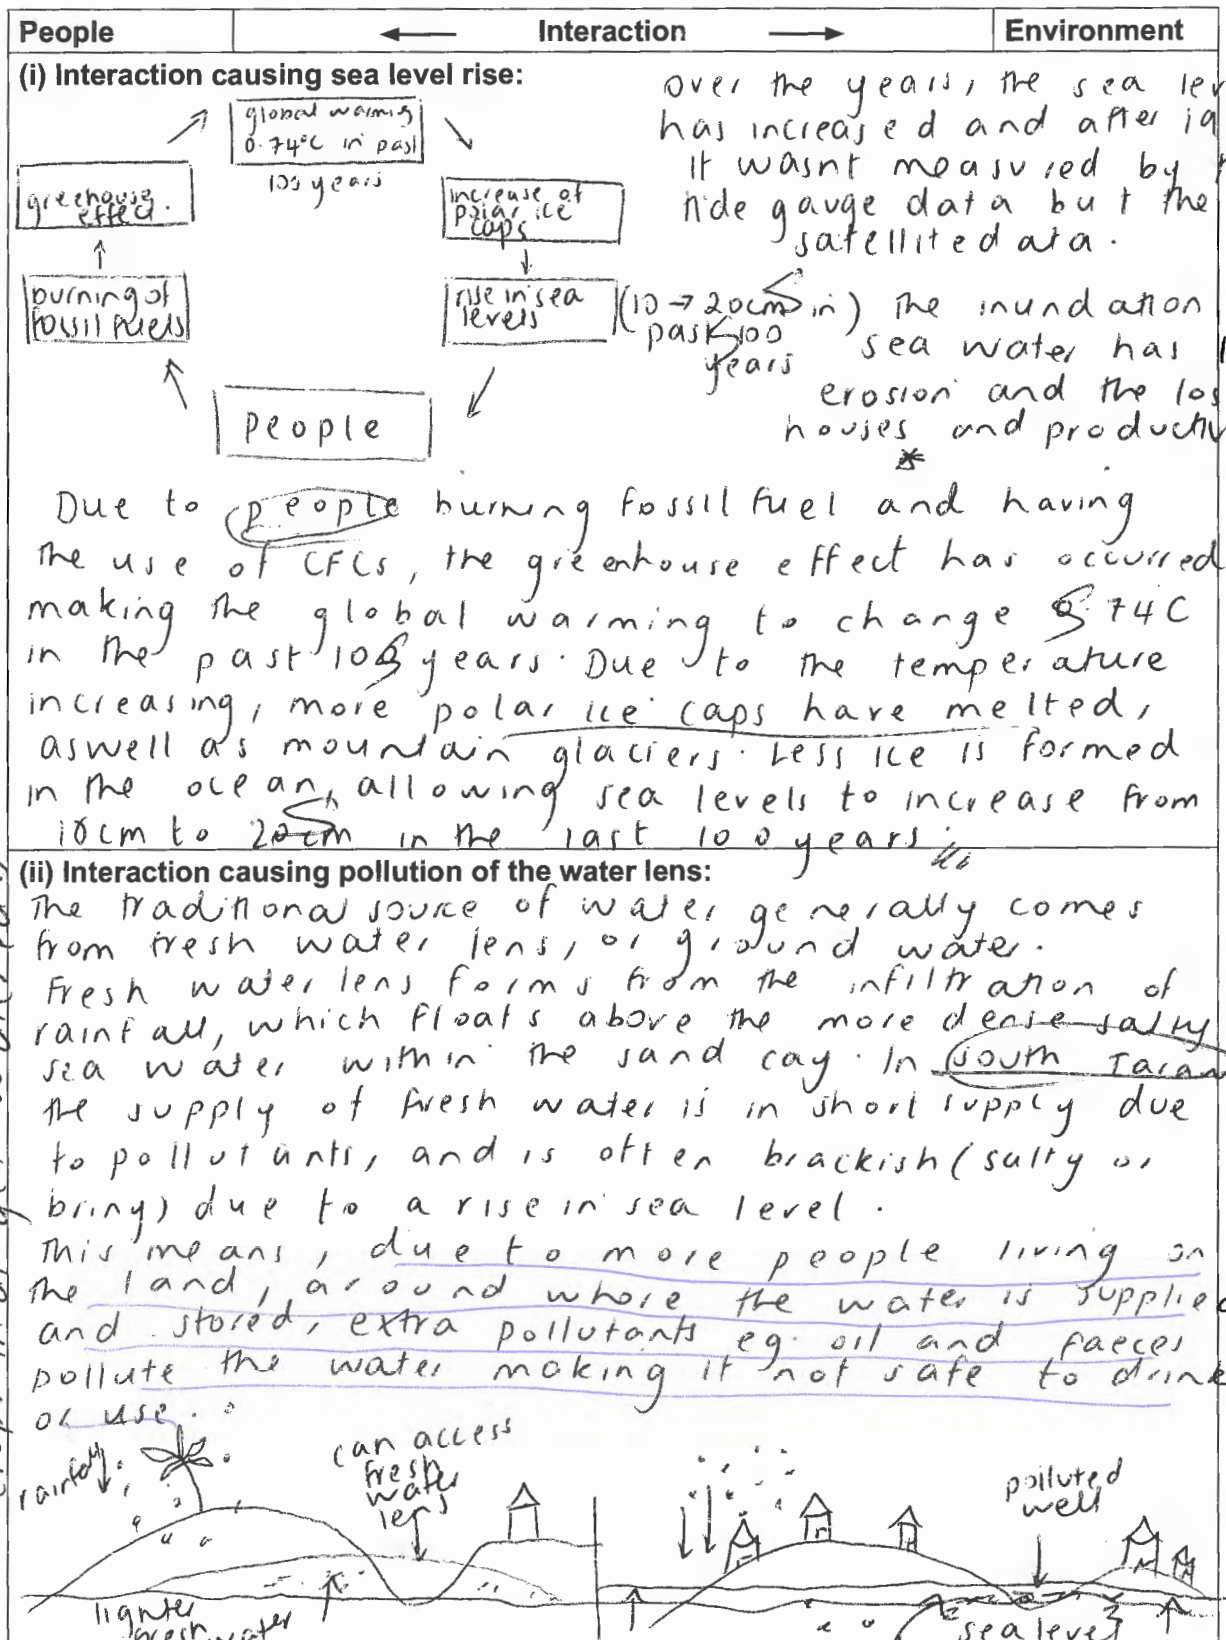 People
Interaction
Environment
(i) Interaction causing sea level rise:
global warming
0.74°C in past
100 years
greenhouse
effect.
increase of
polar ice
caps
burning of
fossil fuels
rise in sea
levels
(10 → 20cm in)
past 100
years
people
over the years, the sea lev
has increased and after
it wasnt measured by
tide gauge data but the
satellite data.
the inundation
sea water has
erosion and the los
houses and productiv
Due to people burning fossil fuel and having
the use of CFCs, the greenhouse effect has occurred
making the global warming to change 0.74C
in the past 100 years. Due to the temperature
increasing, more polar ice caps have melted,
aswell as mountain glaciers. Less ice is formed
in the ocean, allowing sea levels to increase from
10cm to 20cm in the last 100 years.
(ii) Interaction causing pollution of the water lens:
The traditional source of water generally comes
from fresh water lens, or ground water.
Fresh water lens forms from the infiltration of
rainfall, which floats above the more dense salty
sea water within the sand cay. In South Taraw
the supply of fresh water is in short supply due
to pollutants, and is often brackish (salty or
briny) due to a rise in sea level.
This means, due to more people living on
the land, around whore the water is supplied
and stored, extra pollutants eg. oil and faeces
pollute the water making it not safe to drink
or use.
rainfall
can access
fresh
water
lens
polluted
well
lighter
fresh
water
sea level